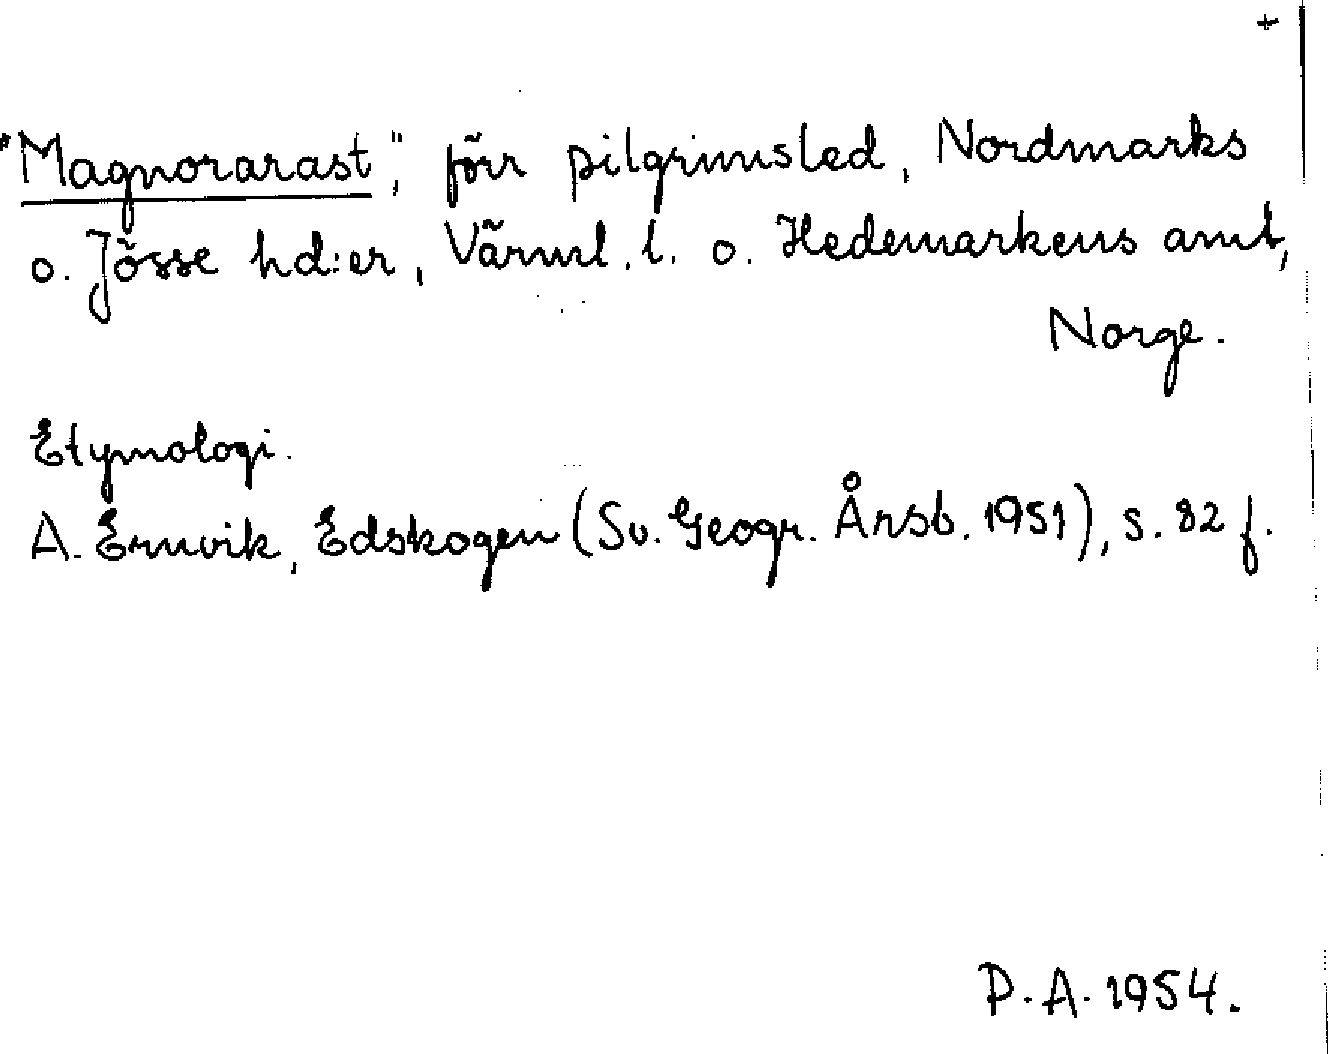 +
"Magnorarast", förr pilgrimsled, Nordmarks
o. Jösse hd:er, Värml. l. o. Hedemarkens amt,
Norge.
Etymologi.
A. Ernvik, Edskogen (Sv. Geogr. Årsb. 1951), s. 82 f.
P.A. 1954.